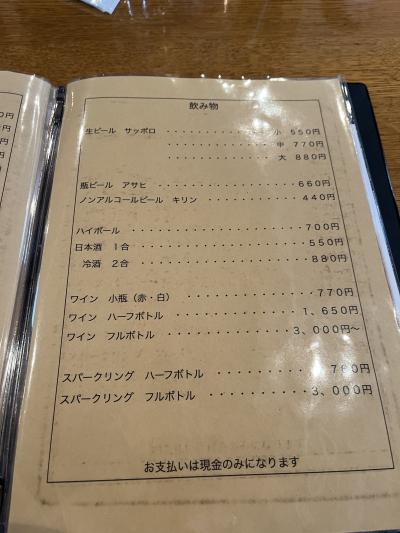 飲み物
生ビール サッポロ ・・・・・・・・・・・・・ 小 550円
・・・・・・・・・・・・・ 中 770円
・・・・・・・・・・・・・ 大 880円
瓶ビール アサヒ ・・・・・・・・・・・・・・・・・660円
ノンアルコールビール キリン ・・・・・・・・・・・440円
ハイボール ・・・・・・・・・・・・・・・・・・700円
日本酒 1合 ・・・・・・・・・・・・・・・・・・550円
冷酒 2合 ・・・・・・・・・・・・・・・・・・880円
ワイン 小瓶(赤・白) ・・・・・・・・・・・・770円
ワイン ハーフボトル ・・・・・・・・・・・・1,650円
ワイン フルボトル ・・・・・・・・・・・・3,000円~
スパークリング ハーフボトル ・・・・・・・・・
スパークリング フルボトル ・・・・・・・・・3,000円
お支払いは現金のみになります